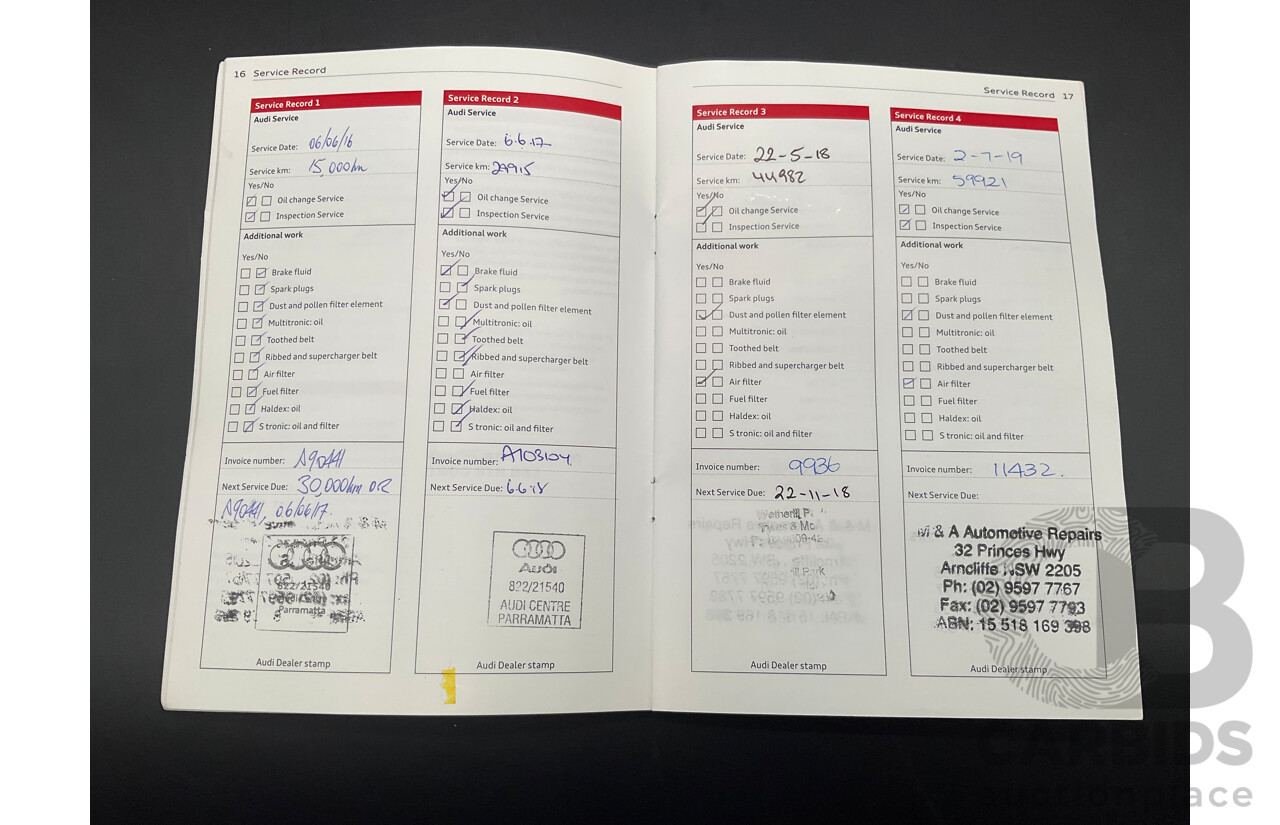 16 Service Record
Service Record 1
Audi Service
Service Date: 06/06/16
Service km: 15,000km
Yes/No
Oil change Service
Inspection Service
Additional work
Yes/No
Brake fluid
Spark plugs
Dust and pollen filter element
Multitronic: oil
Toothed belt
Ribbed and supercharger belt
Air filter
Fuel filter
Haldex: oil
S tronic: oil and filter
Invoice number: A90441
Next Service Due: 30,000km OR
A90441, 06/06/17.
822/21540
Parramatta
Audi Dealer stamp
Service Record 2
Audi Service
Service Date: 6.6.17
Service km: 29915
Yes/No
Oil change Service
Inspection Service
Additional work
Yes/No
Brake fluid
Spark plugs
Dust and pollen filter element
Multitronic: oil
Toothed belt
Ribbed and supercharger belt
Air filter
Fuel filter
Haldex: oil
S tronic: oil and filter
Invoice number: A103104
Next Service Due: 6.6.18
Audi
822/21540
AUDI CENTRE
PARRAMATTA
Audi Dealer stamp
Service Record 17
Service Record 3
Audi Service
Service Date: 22-5-18
Service km: 44982
Yes/No
Oil change Service
Inspection Service
Additional work
Yes/No
Brake fluid
Spark plugs
Dust and pollen filter element
Multitronic: oil
Toothed belt
Ribbed and supercharger belt
Air filter
Fuel filter
Haldex: oil
S tronic: oil and filter
Invoice number: 9936
Next Service Due: 22-11-18
Audi Dealer stamp
Service Record 4
Audi Service
Service Date: 2-7-19
Service km: 59921
Yes/No
Oil change Service
Inspection Service
Additional work
Yes/No
Brake fluid
Spark plugs
Dust and pollen filter element
Multitronic: oil
Toothed belt
Ribbed and supercharger belt
Air filter
Fuel filter
Haldex: oil
S tronic: oil and filter
Invoice number: 11432.
Next Service Due:
M & A Automotive Repairs
32 Princes Hwy
Arncliffe NSW 2205
Ph: (02) 9597 7767
Fax: (02) 9597 7793
ABN: 15 518 169 398
Audi Dealer stamp
CARBIDS
auctionplace